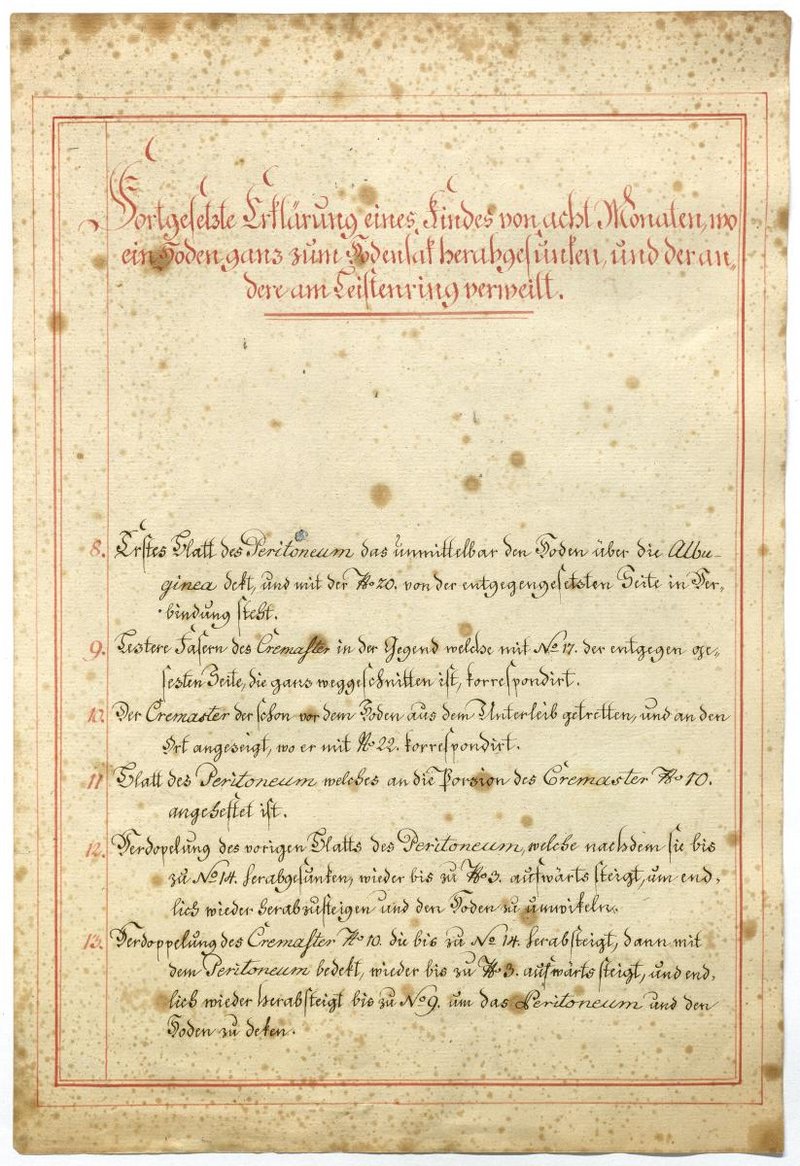 Fortgesetzte Erklärung eines Kindes von acht Monaten, wo
ein Hoden ganz zum Hodensak herabgesunken, und der an„
dere am Leistenring verweilt.
8. Erstes Blatt des Peritoneum das unmittelbar den Hoden über die Albu-
ginea dekt, und mit der No 20. von der entgegengesetzten Seite in Ver-
bindung steht.
9. Leztere Fasern des Cremaster in der Gegend welche mit No 17. der entgegen ge-
sezten Seite, die ganz weggeschnitten ist, korrespondirt.
10. Der Cremaster der schon vor dem Hoden aus dem Unterleib getretten, und an den
Ort angezeigt, wo er mit No 22. korrespondirt.
11 Blatt des Peritoneum welches an die Porzion des Cremaster No 10.
angeheftet ist.
12. Verdopelung des vorigen Blatts des Peritoneum, welche nachdem sie bis
zu No 14. herabgesunken, wieder bis zu No 3. aufwärts steigt, um end-
lich wieder herabzusteigen und den Hoden zu umwikeln.
13. Verdoppelung des Cremaster No 10. die bis zu No 14. herabsteigt, dann mit
dem Peritoneum bedekt, wieder bis zu No 3. aufwärts steigt, und end-
lich wieder herabsteigt bis zu No 9. um das Peritoneum und den
Hoden zu deken.